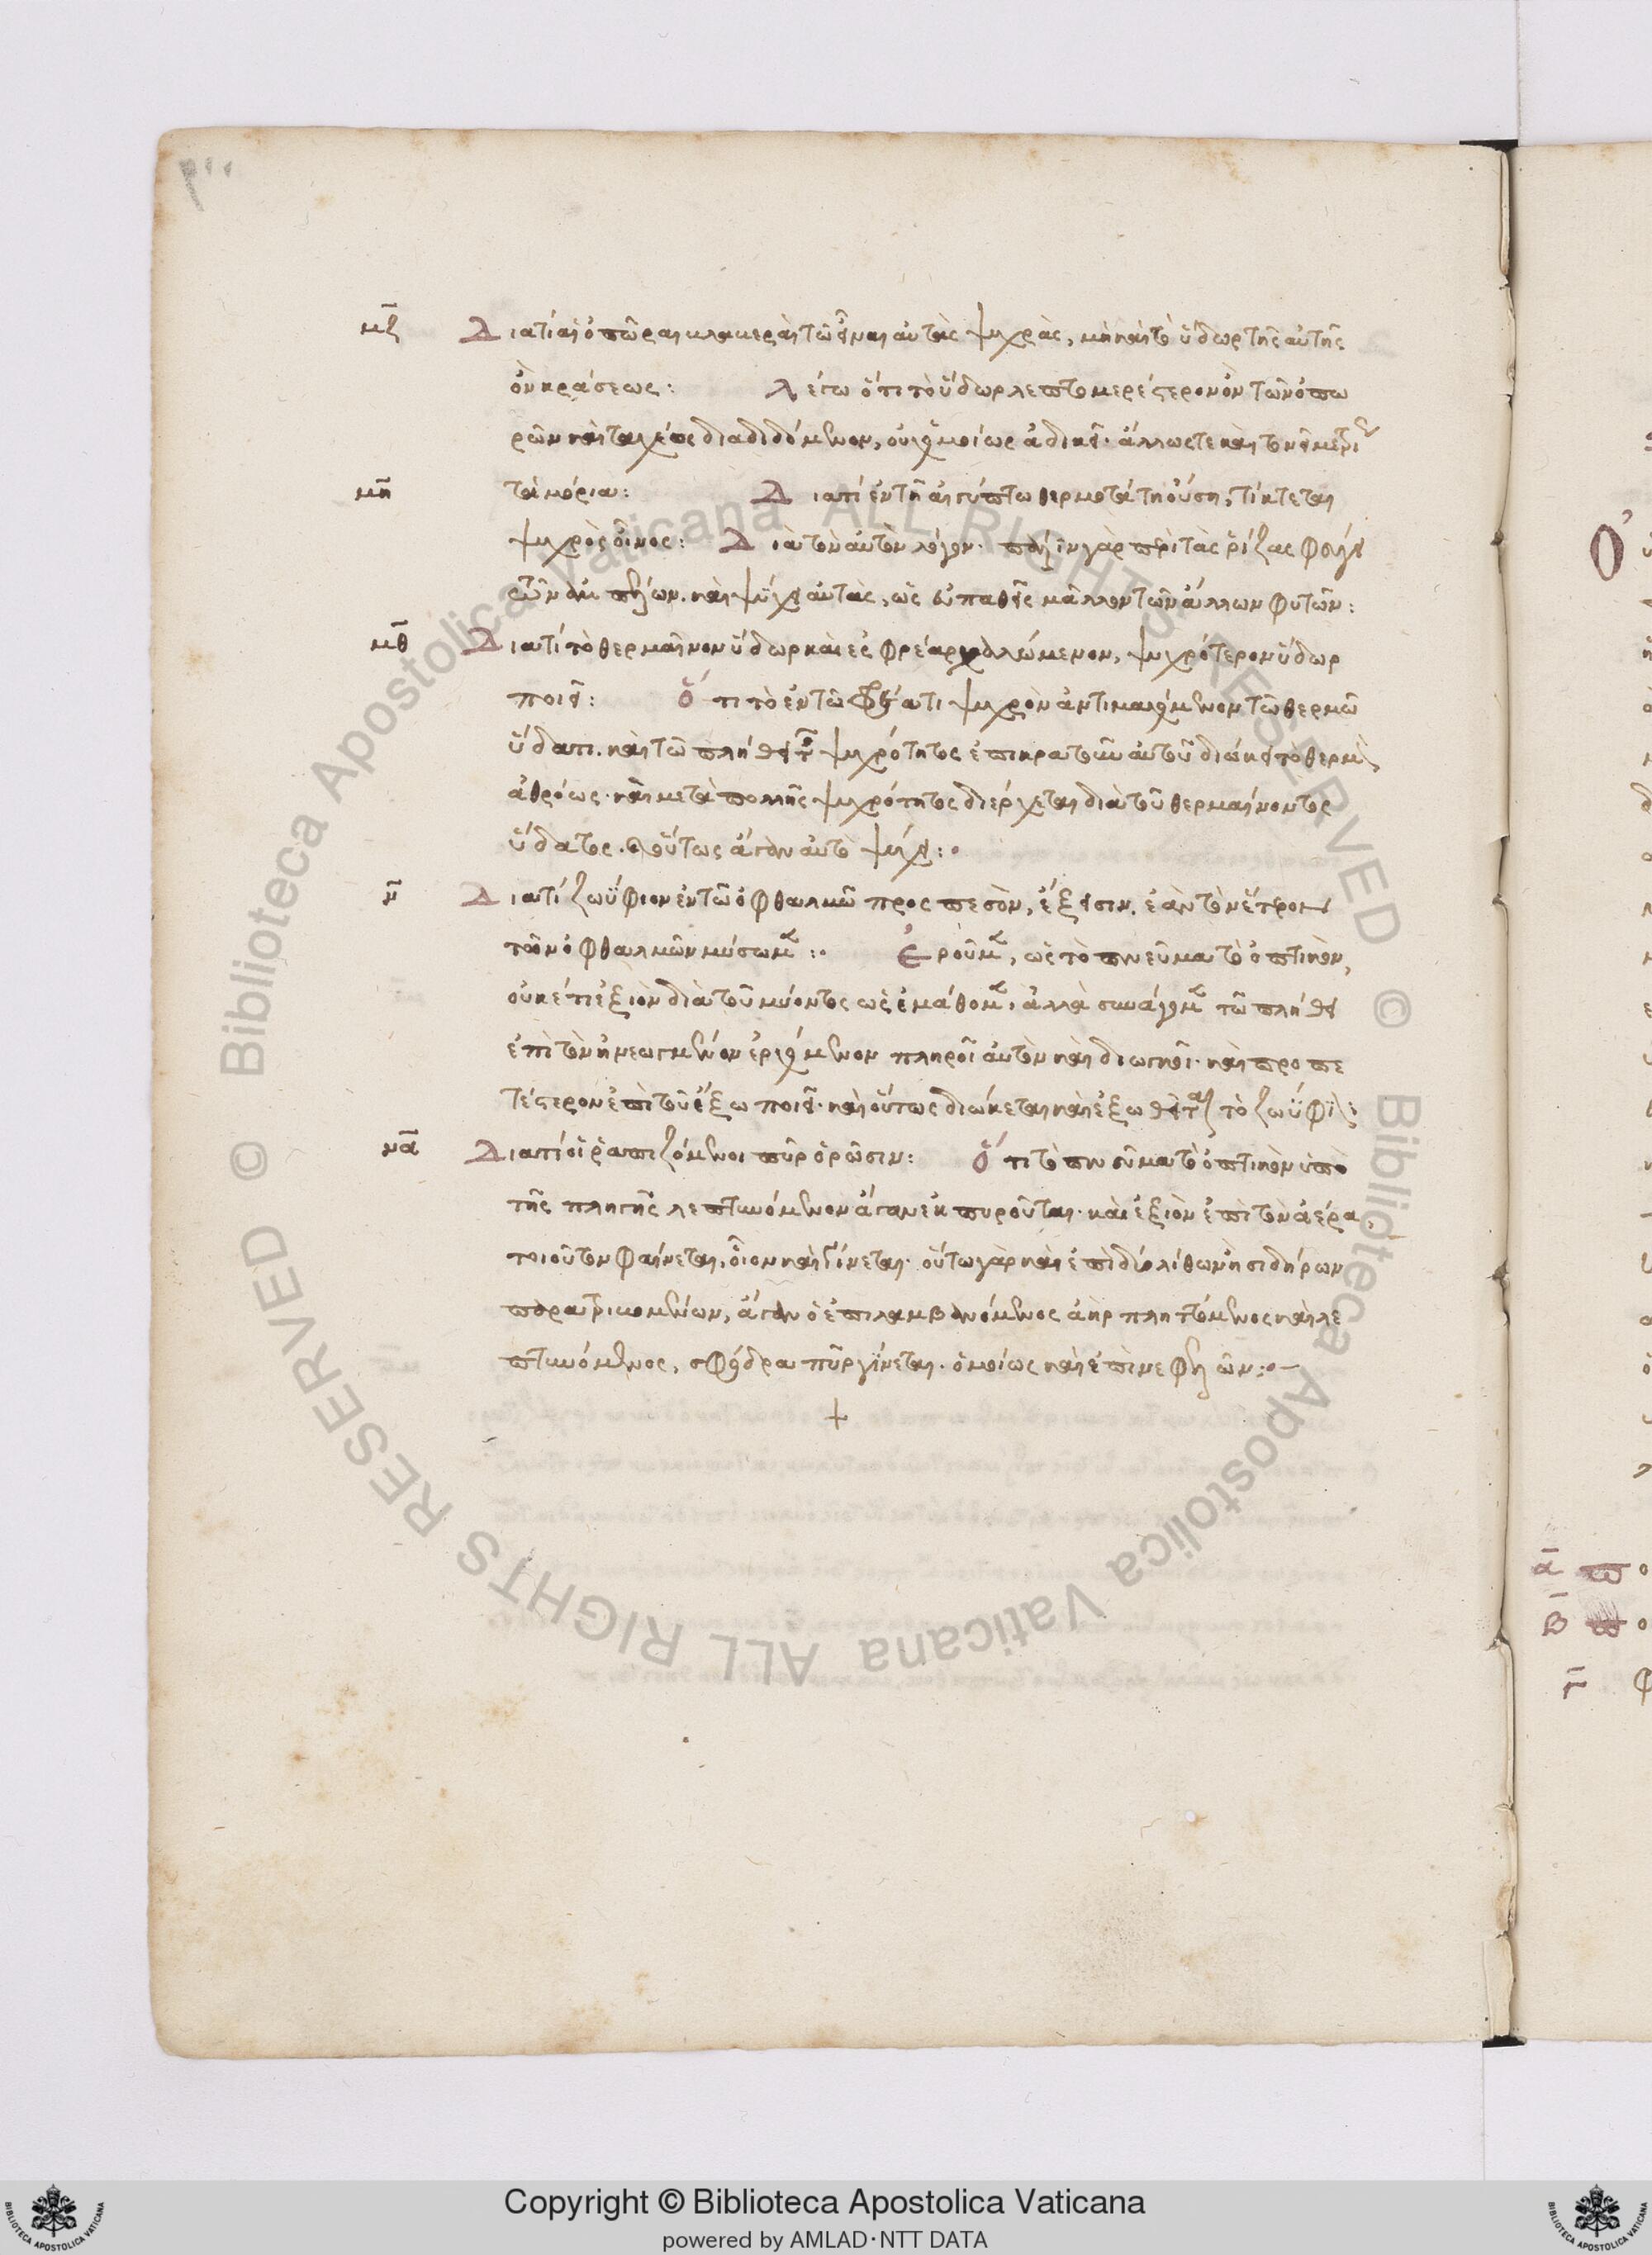 μζ Διατί αἱ ὀπῶραι κακεραὶ τῶ εἶναι αὐτὰς ψυχρὰς, μὴ καὶ τὸ ὕδωρ τῆς αὐτῆς
ὂν κράσεως: λέγω ὅτι τὸ ὕδωρ λεπτομερέστερον ὂν τῶν ὀπω
ρῶν καὶ ταχέως διαδιδόμενον, οὐχ ὁμοίως ἀδικεῖ· ἄλλως τε καὶ
μη τὰ μόρια: Διατί ἐν τῆ αἰγύπτω θερμοτάτη οὔση, τίκτεται
ψυχρὸς οἶνος: Διὰ τὸν αὐτὸν λόγον· γὰρ περὶ τὰς ῥίζας
τῶν καὶ ψύχει αὐτὰς, ὡς εὐπαθεῖς μᾶλλον τῶν ἄλλων φυτῶν:
μθ Διατί τὸ θερμαῖνον ὕδωρ καὶ ἐς φρέαρ χαλώμενον, ψυχρότερον ὕδωρ
ποιεῖ: Ὅτι τὸ ἐν τῶ φρέατι ψυχρὸν ἀντικαιόμενον τῶ θερμῶ
ὕδατι. καὶ τῶ πλήθει τῆς ψυχρότητος ἐπικρατοῦν αὐτοῦ διώκει τὸ θερμὸν
ἀθρόως· καὶ μετὰ πολλῆς ψυχρότητος διέρχεται διὰ τοῦ θερμαίνοντος
ὕδατος. οὕτως ἄγαν αὐτὸ ψύχει:
ν Διατί ζωΰφιον ἐν τῶ ὀφθαλμῶ προσπεσὸν, ἔξεισιν, ἐὰν τὸν ἕτερον
τῶν ὀφθαλμῶν μύσωμεν: Ἐροῦμεν, ὡς τὸ πνεῦμα τὸ ὀπτικὸν,
οὐκέτι ἐξιὸν διὰ τοῦ μύοντος ὡς ἐμάθομεν, ἀλλὰ συνάγομεν τῶ πλήθει
ἐπὶ τὸν ἠνεωγμένον ἐρχόμενον πληροῖ αὐτὸν καὶ διωγκοῖ· καὶ προπε
τέστερον ἐπὶ τοῦ ἔξω ποιεῖ· καὶ οὕτως διώκεται καὶ ἔξω θεῖται τὸ ζωΰφιον:
να Διατί οἱ ῥαπιζόμενοι πῦρ ὁρῶσιν: Ὅτι τὸ πνεῦμα τὸ ὀπτικὸν ὑπὸ
τῆς πληγῆς λεπτυνόμενον ἄγαν ἐκπυροῦται· καὶ ἐξιὸν ἐπὶ τὸν ἀέρα,
τοιοῦτον φαίνεται, οἷον καὶ γίνεται· οὕτω γὰρ καὶ ἐπὶ δύο λίθων ἢ σιδήρων
παρατριβομένων, ἄγαν ὁ ἐπιλαμβανόμενος ἀὴρ πληττόμενος καὶ λε
πτυνόμενος, σφόδρα πῦρ γίνεται. ὁμοίως καὶ ἐπὶ νεφελῶν:
Copyright © Biblioteca Apostolica Vaticana
powered by AMLAD·NTT DATA